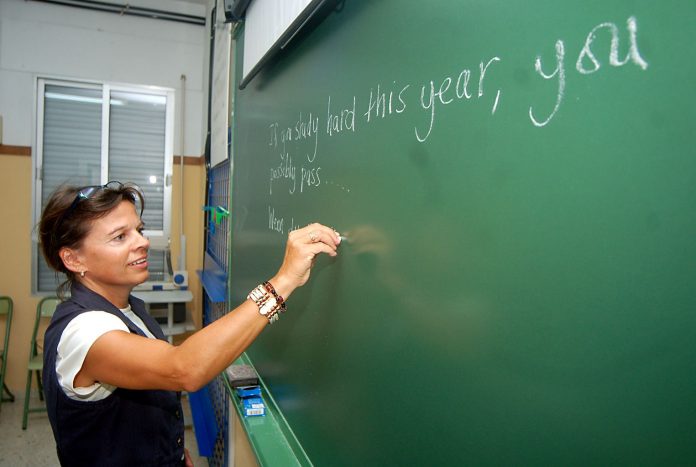 If you study hard this year, you
possibly pass ......